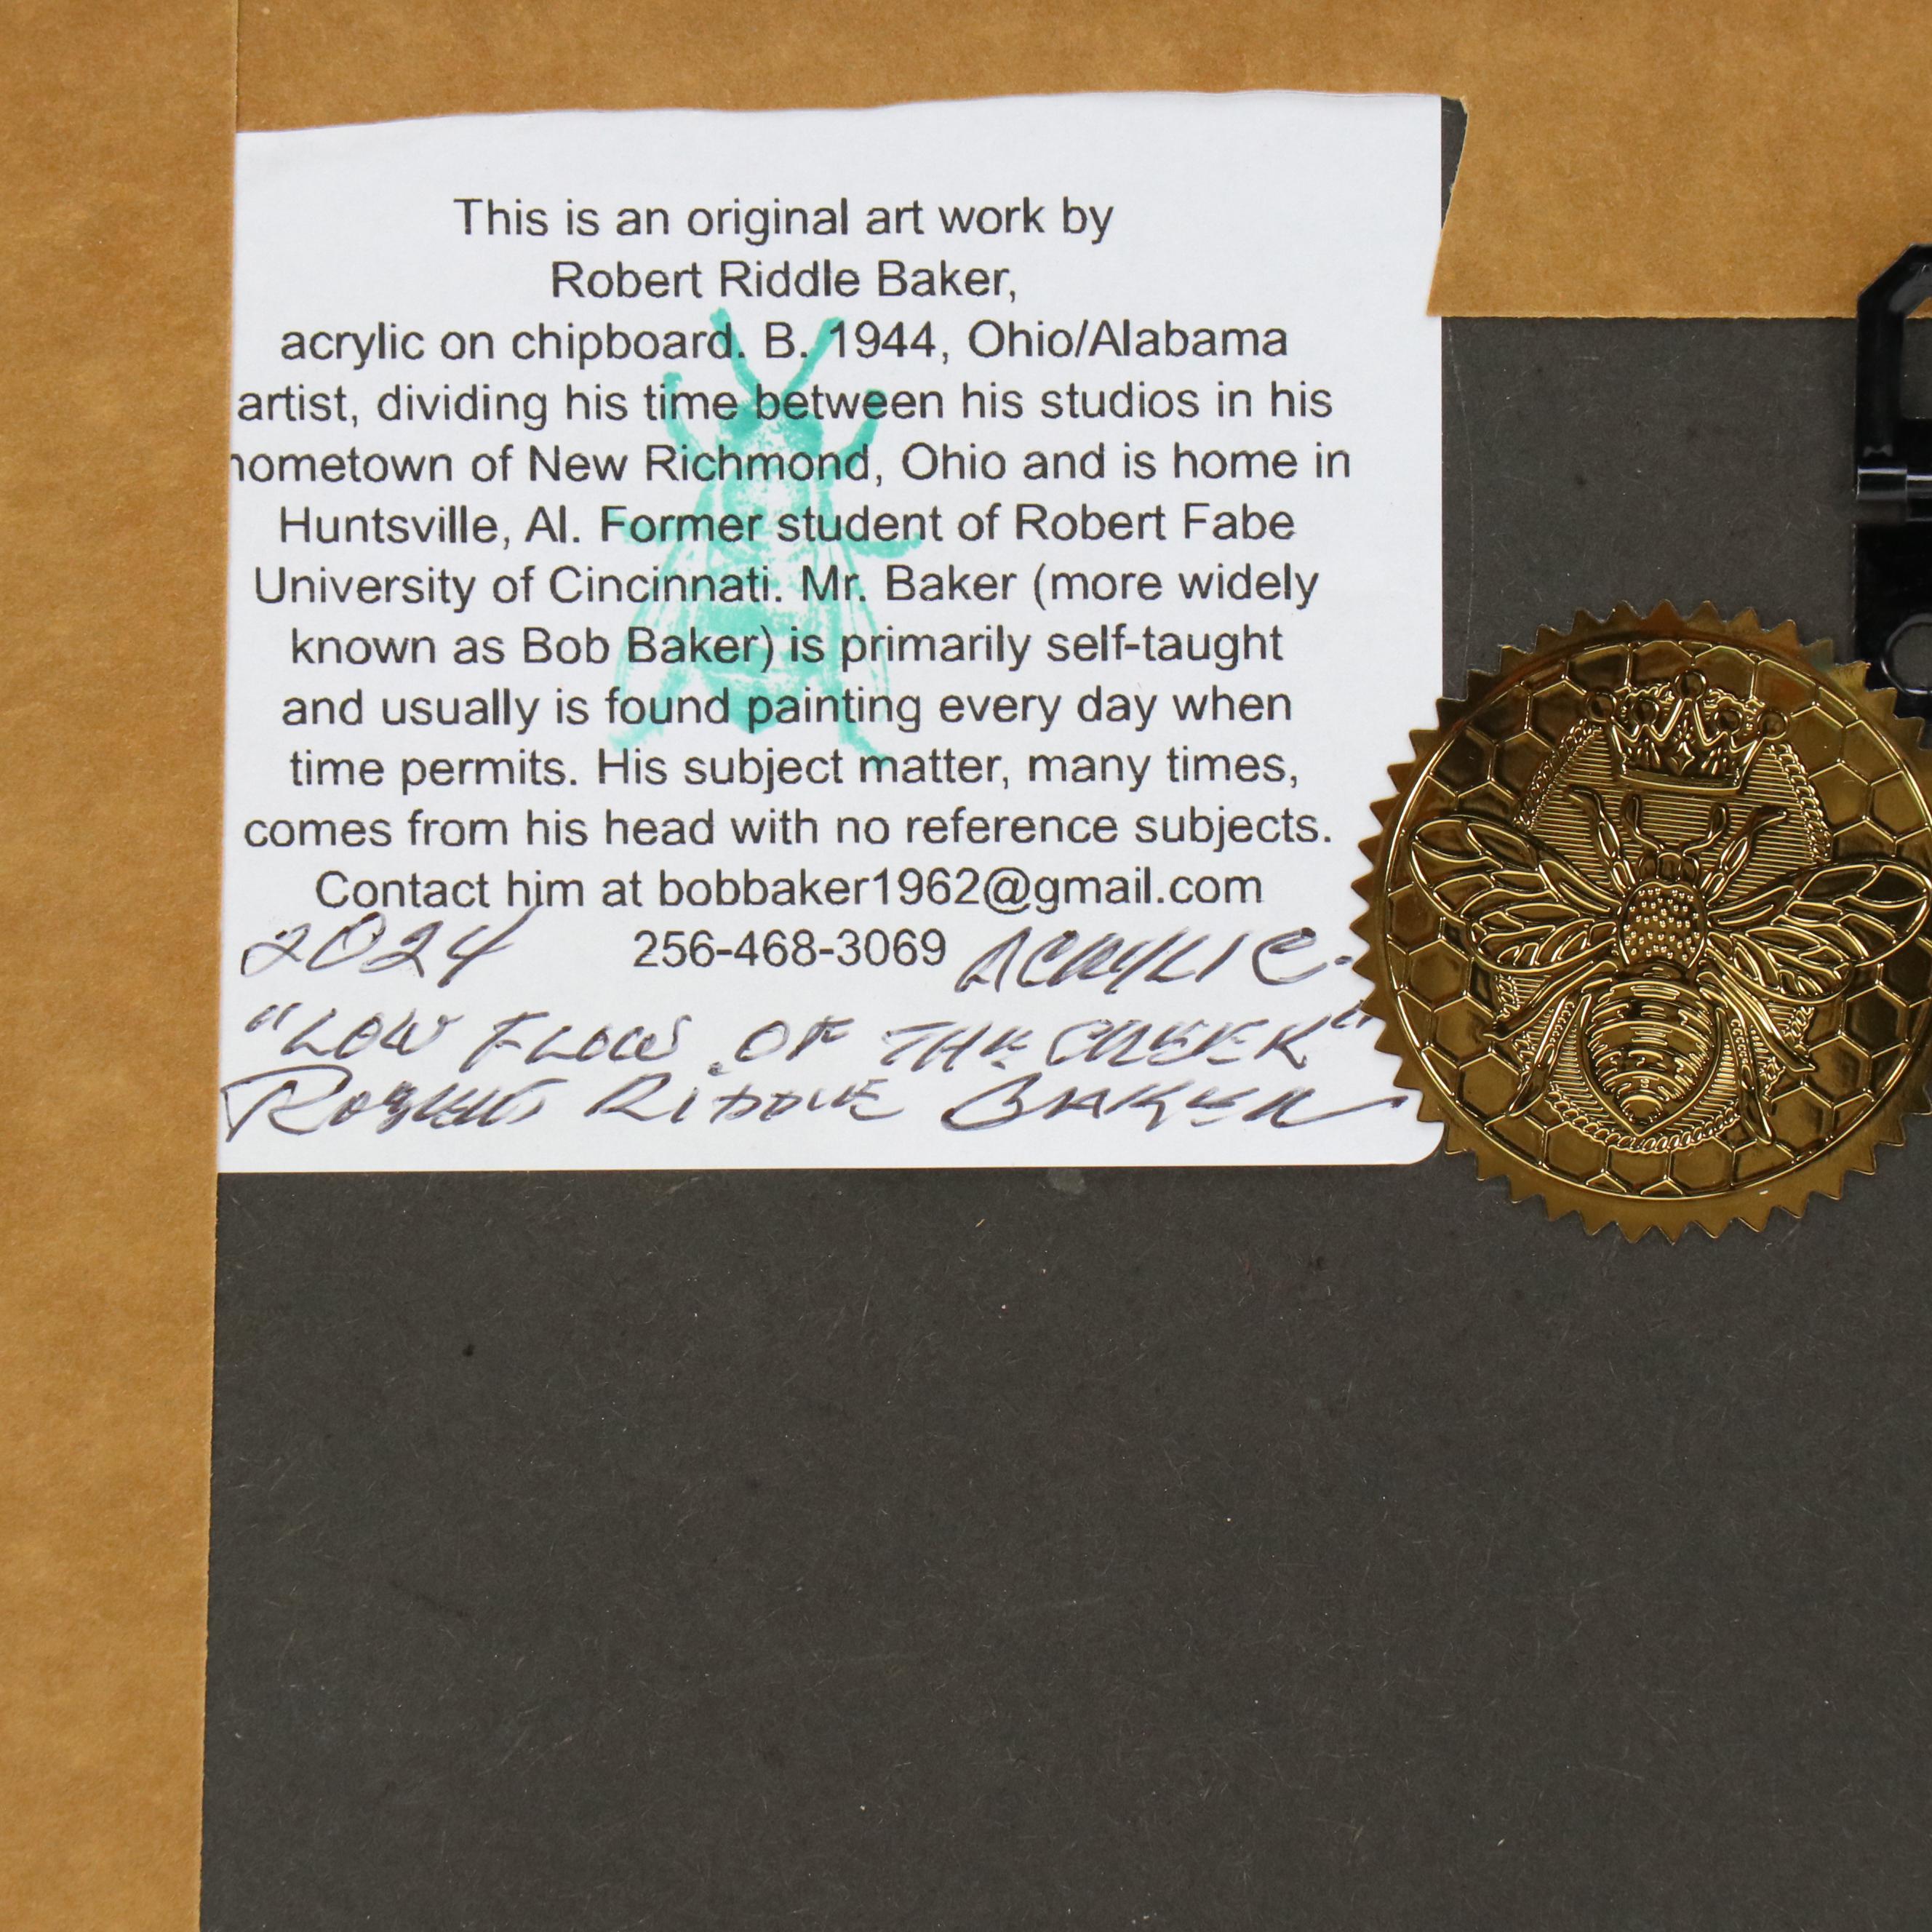 This is an original art work by
Robert Riddle Baker,
acrylic on chipboard. B. 1944, Ohio/Alabama
artist, dividing his time between his studios in his
hometown of New Richmond, Ohio and is home in
Huntsville, Al. Former student of Robert Fabe
University of Cincinnati. Mr. Baker (more widely
known as Bob Baker) is primarily self-taught
and usually is found painting every day when
time permits. His subject matter, many times,
comes from his head with no reference subjects.
Contact him at bobbaker1962@gmail.com
2024 256-468-3069 ACRYLIC.
"LOW FLOW OF THE CREEK"
ROBERT RIDDLE BAKER